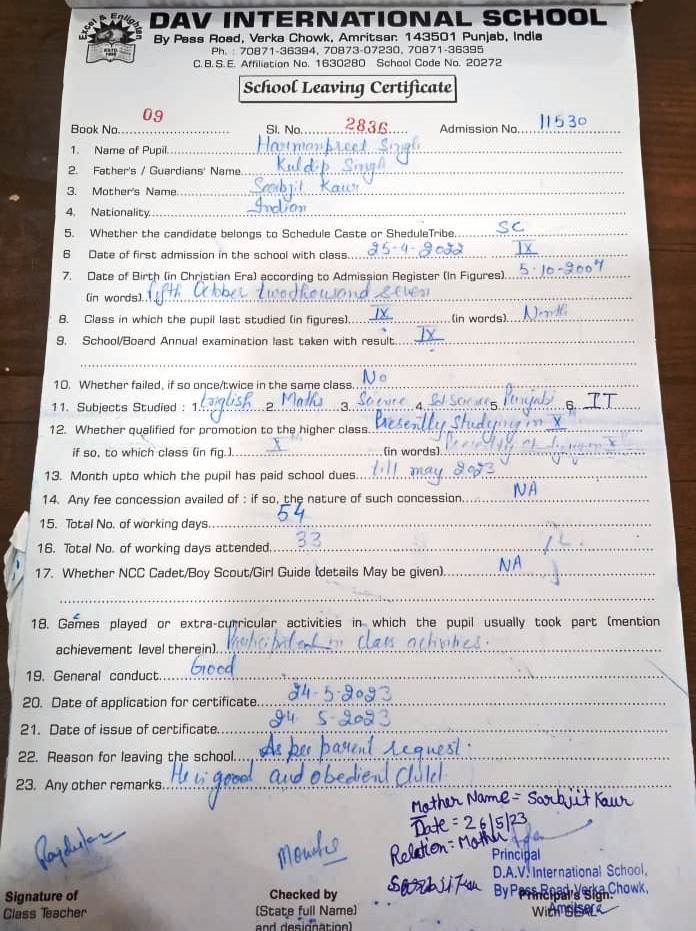 Excel & Enlighten
DAV INTERNATIONAL SCHOOL
By Pass Road, Verka Chowk, Amritsar. 143501 Punjab, India
Ph. : 70871-36394, 70873-07230, 70871-36395
C.B.S.E. Affiliation No. 1630280 School Code No. 20272
School Leaving Certificate
Book No. 09 Sl. No. 2836 Admission No. 11530
1. Name of Pupil Harmanpreet Singh
2. Father's / Guardians' Name Kuldip Singh
3. Mother's Name Sarbjit Kaur
4. Nationality Indian
5. Whether the candidate belongs to Schedule Caste or SheduleTribe SC
6 Date of first admission in the school with class 25-4-2022 IX
7. Date of Birth (in Christian Era) according to Admission Register (In Figures) 5-10-2007
(in words) fifth October twothousand seven
8. Class in which the pupil last studied (in figures) IX (in words) Ninth
9. School/Board Annual examination last taken with result IX
10. Whether failed, if so once/twice in the same class No
11. Subjects Studied : 1. English 2. Maths 3. Science 4. S.Science 5. Punjabi 6. IT
12. Whether qualified for promotion to the higher class Presently Studying in X
if so, to which class (in fig.) X (in words) Presently Studying in X
13. Month upto which the pupil has paid school dues till may 2023
14. Any fee concession availed of : if so, the nature of such concession NA
15. Total No. of working days 54
16. Total No. of working days attended 33
17. Whether NCC Cadet/Boy Scout/Girl Guide (details May be given) NA
18. Games played or extra-curricular activities in which the pupil usually took part (mention
achievement level therein) Participated in class activities.
19. General conduct Good
20. Date of application for certificate 24-5-2023
21. Date of issue of certificate 24 5-2023
22. Reason for leaving the school As per parent request.
23. Any other remarks He is good and obedient child
Mother Name = Sarbjit Kaur
Date = 26/5/23
Relation = Mother
Principal
D.A.V. International School,
By Pass Road, Verka Chowk,
Amritsar
Signature of
Class Teacher
Checked by
(State full Name)
and designation)
Principal's Sign.
With SEAL